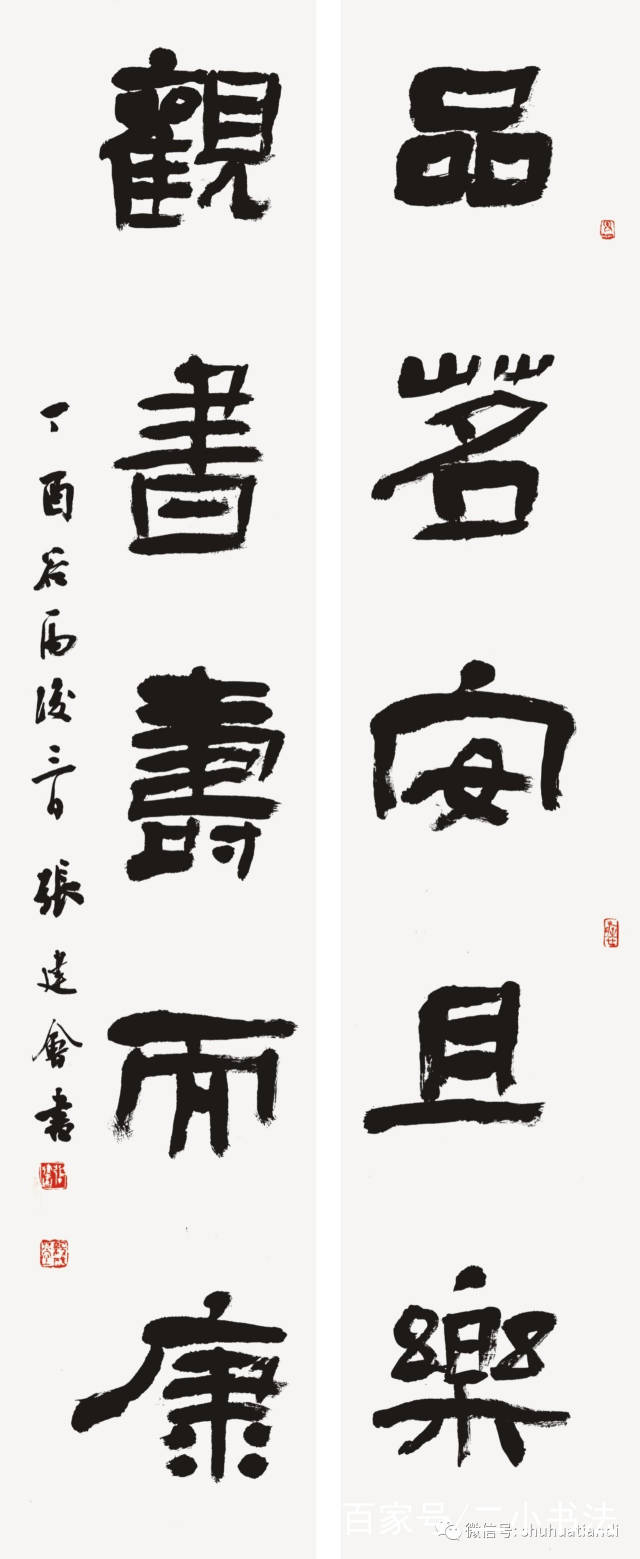 品茗安且樂
觀書壽而康
丁酉谷雨後三日張建會書
百家号/二小书法
微信号:shuhuatiandi